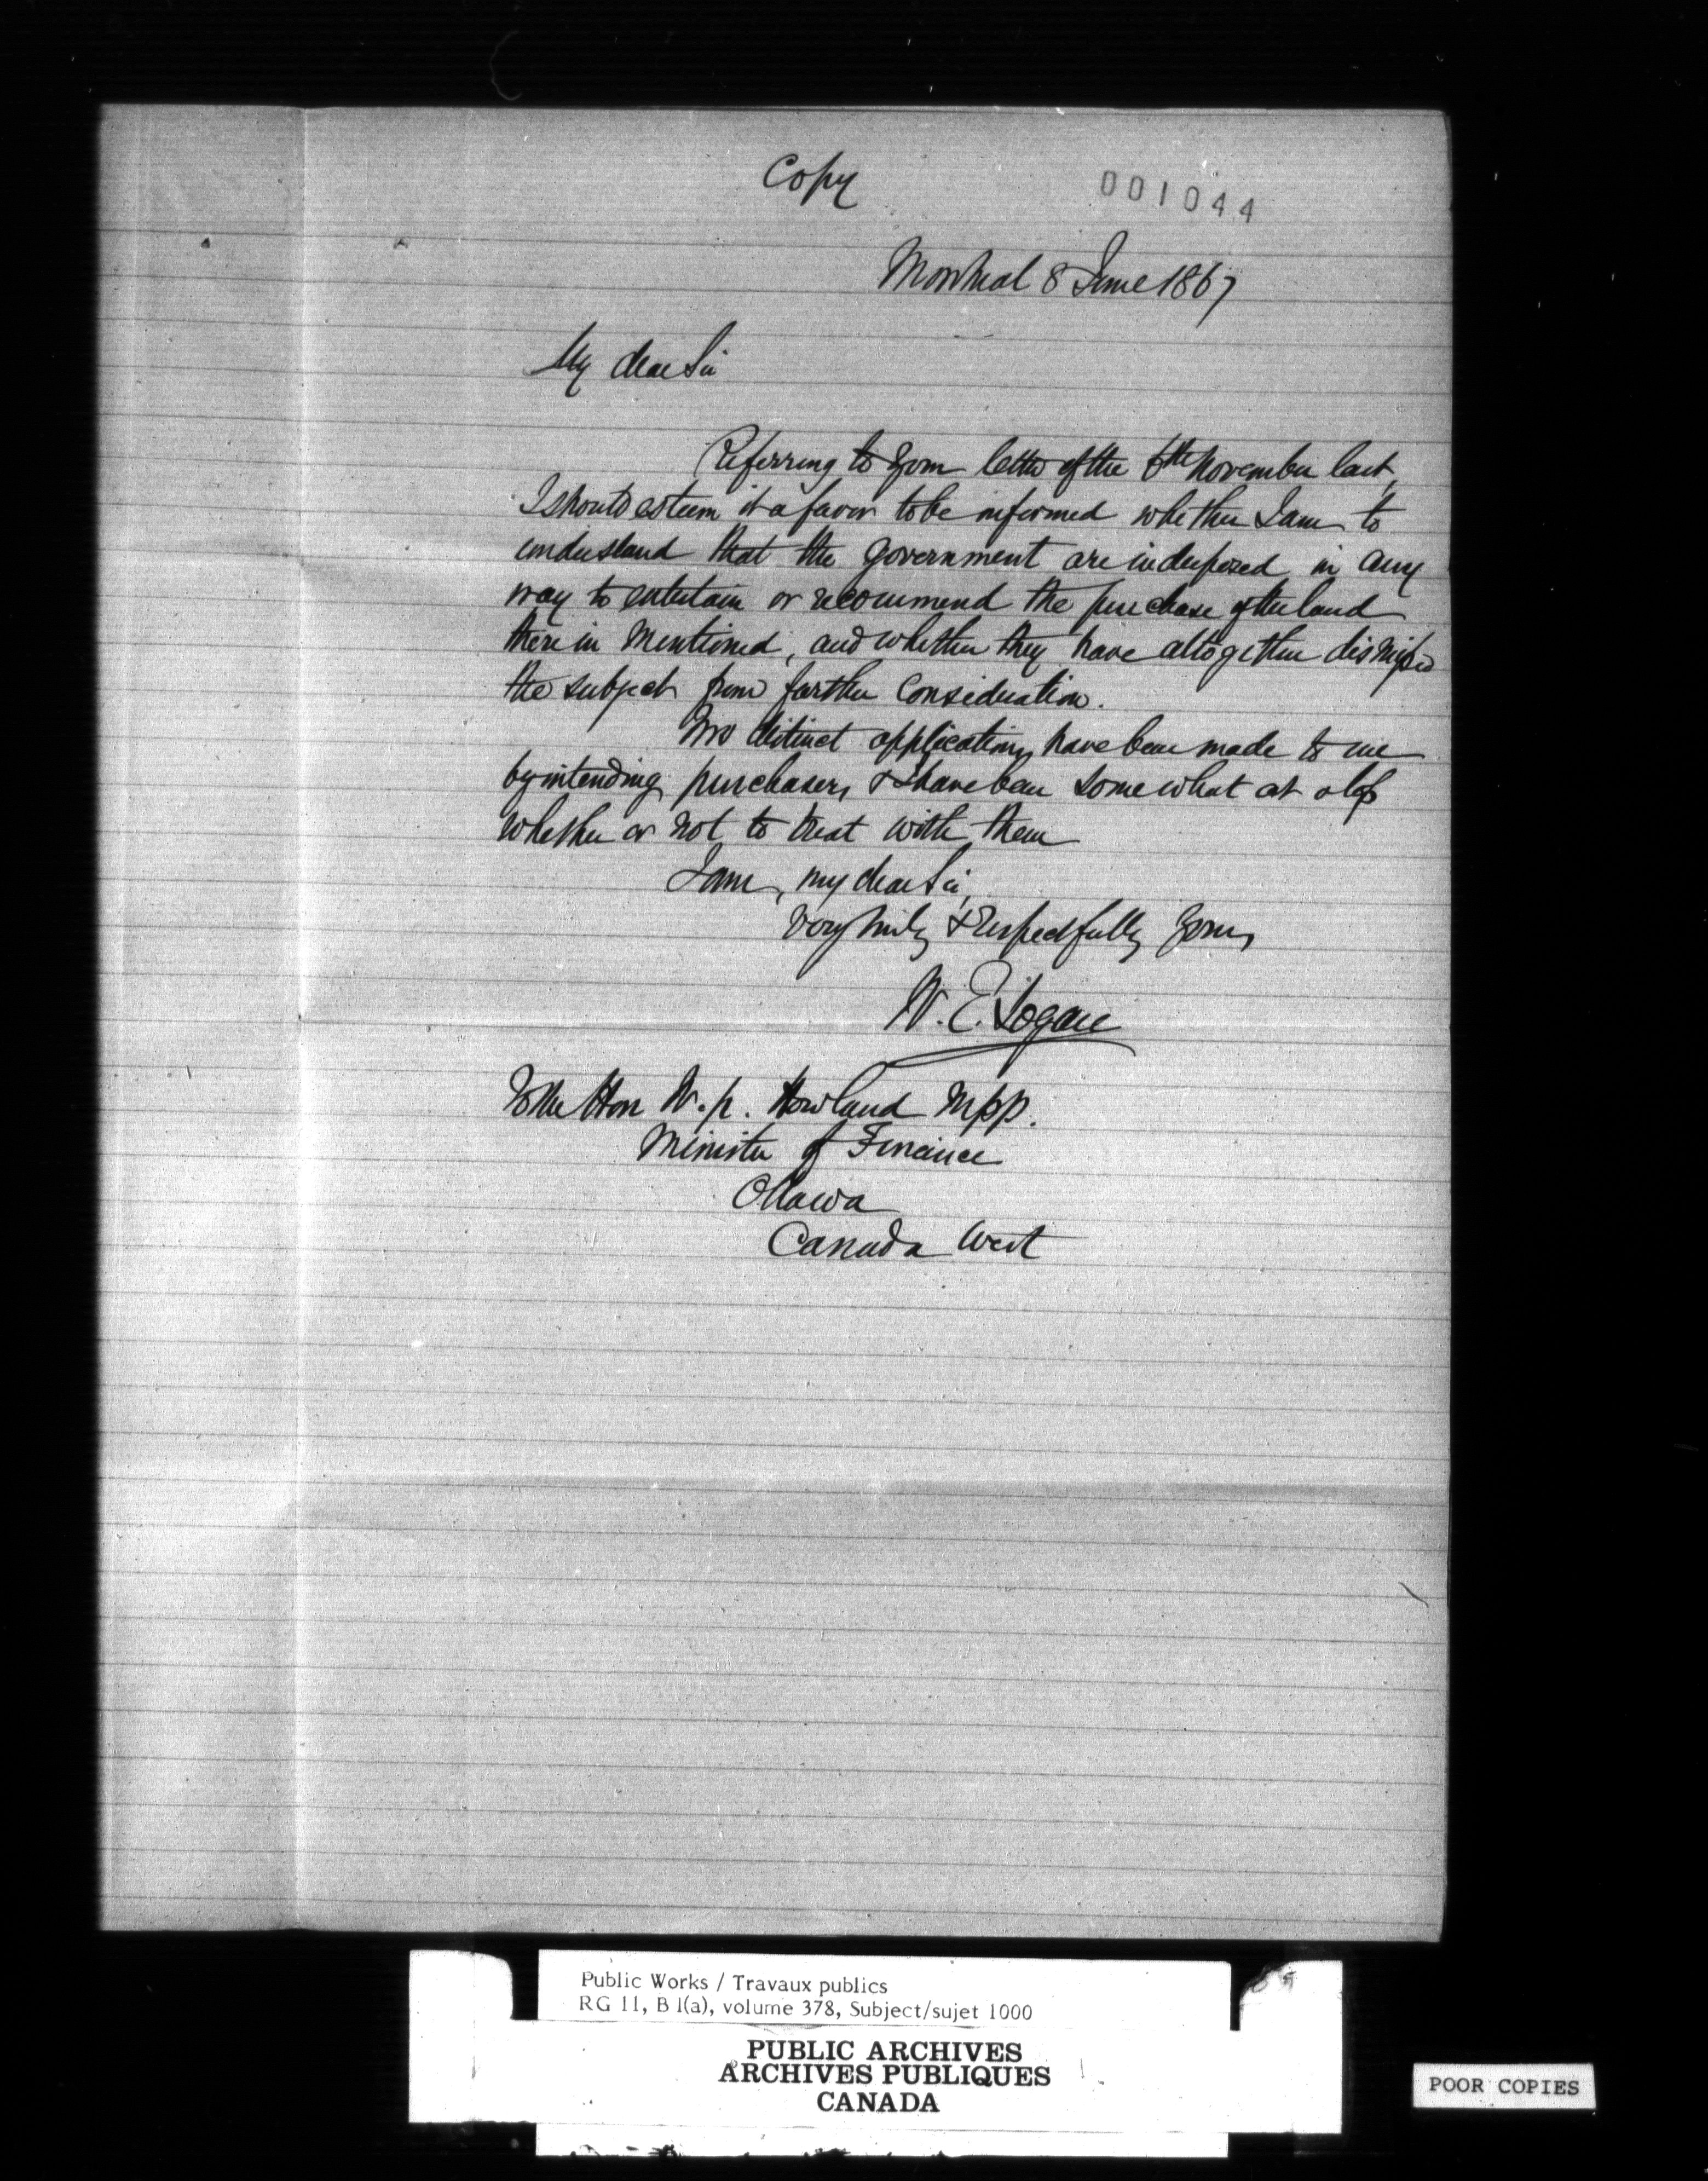 Copy
001044
Montreal 8 June 1867
My dear Sir
Referring to your letter of the 6th November last,
I should esteem it a favor to be informed whether I am to
understand that the Government are indisposed in any
way to entertain or recommend the purchase of the land
therein mentioned, and whether they have altogether dismissed
the subject from farther consideration.
Two distinct applications have been made to me
by intending purchasers, & I have been somewhat at a loss
whether or not to treat with them
I am, my dear Sir,
Very truly & respectfully yours
W. E. Logan
To the Hon W. p. Howland Mpp.
Minister of Finance
Ottawa
Canada West
Public Works / Travaux publics
RG 11, B 1(a), volume 378, Subject/sujet 1000
PUBLIC ARCHIVES
ARCHIVES PUBLIQUES
CANADA
POOR COPIES